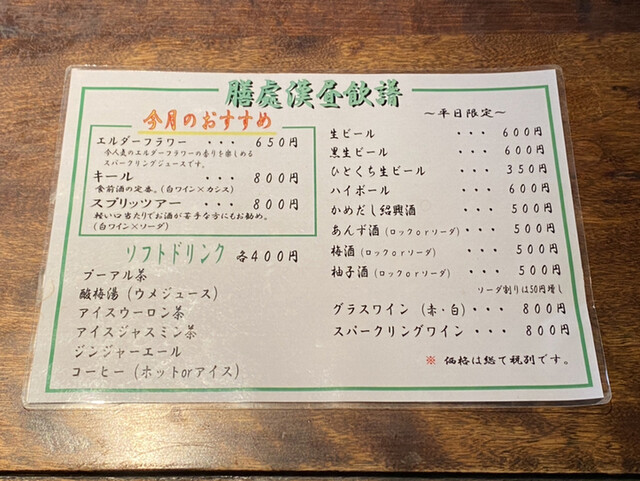 膳處漢昼飲譜
〜平日限定〜
今月のおすすめ
エルダーフラワー ・・・ 650円
今人気のエルダーフラワーの香りを楽しめる
スパークリングジュースです。
キール ・・・ 800円
食前酒の定番。(白ワイン×カシス)
スプリッツアー ・・・ 800円
軽い口当たりでお酒が苦手な方にもお勧め。
(白ワイン×ソーダ)
ソフトドリンク 各400円
プーアル茶
酸梅湯（ウメジュース）
アイスウーロン茶
アイスジャスミン茶
ジンジャーエール
コーヒー（ホットorアイス）
生ビール ・・・ 600円
黒生ビール ・・・ 600円
ひとくち生ビール ・・・ 350円
ハイボール ・・・ 600円
かめだし紹興酒 ・・・ 500円
あんず酒（ロックorソーダ） ・・・ 500円
梅酒（ロックorソーダ） ・・・ 500円
柚子酒（ロックorソーダ） ・・・ 500円
ソーダ割りは50円増し
グラスワイン（赤・白）・・・ 800円
スパークリングワイン ・・・ 800円
※ 価格は総て税別です。